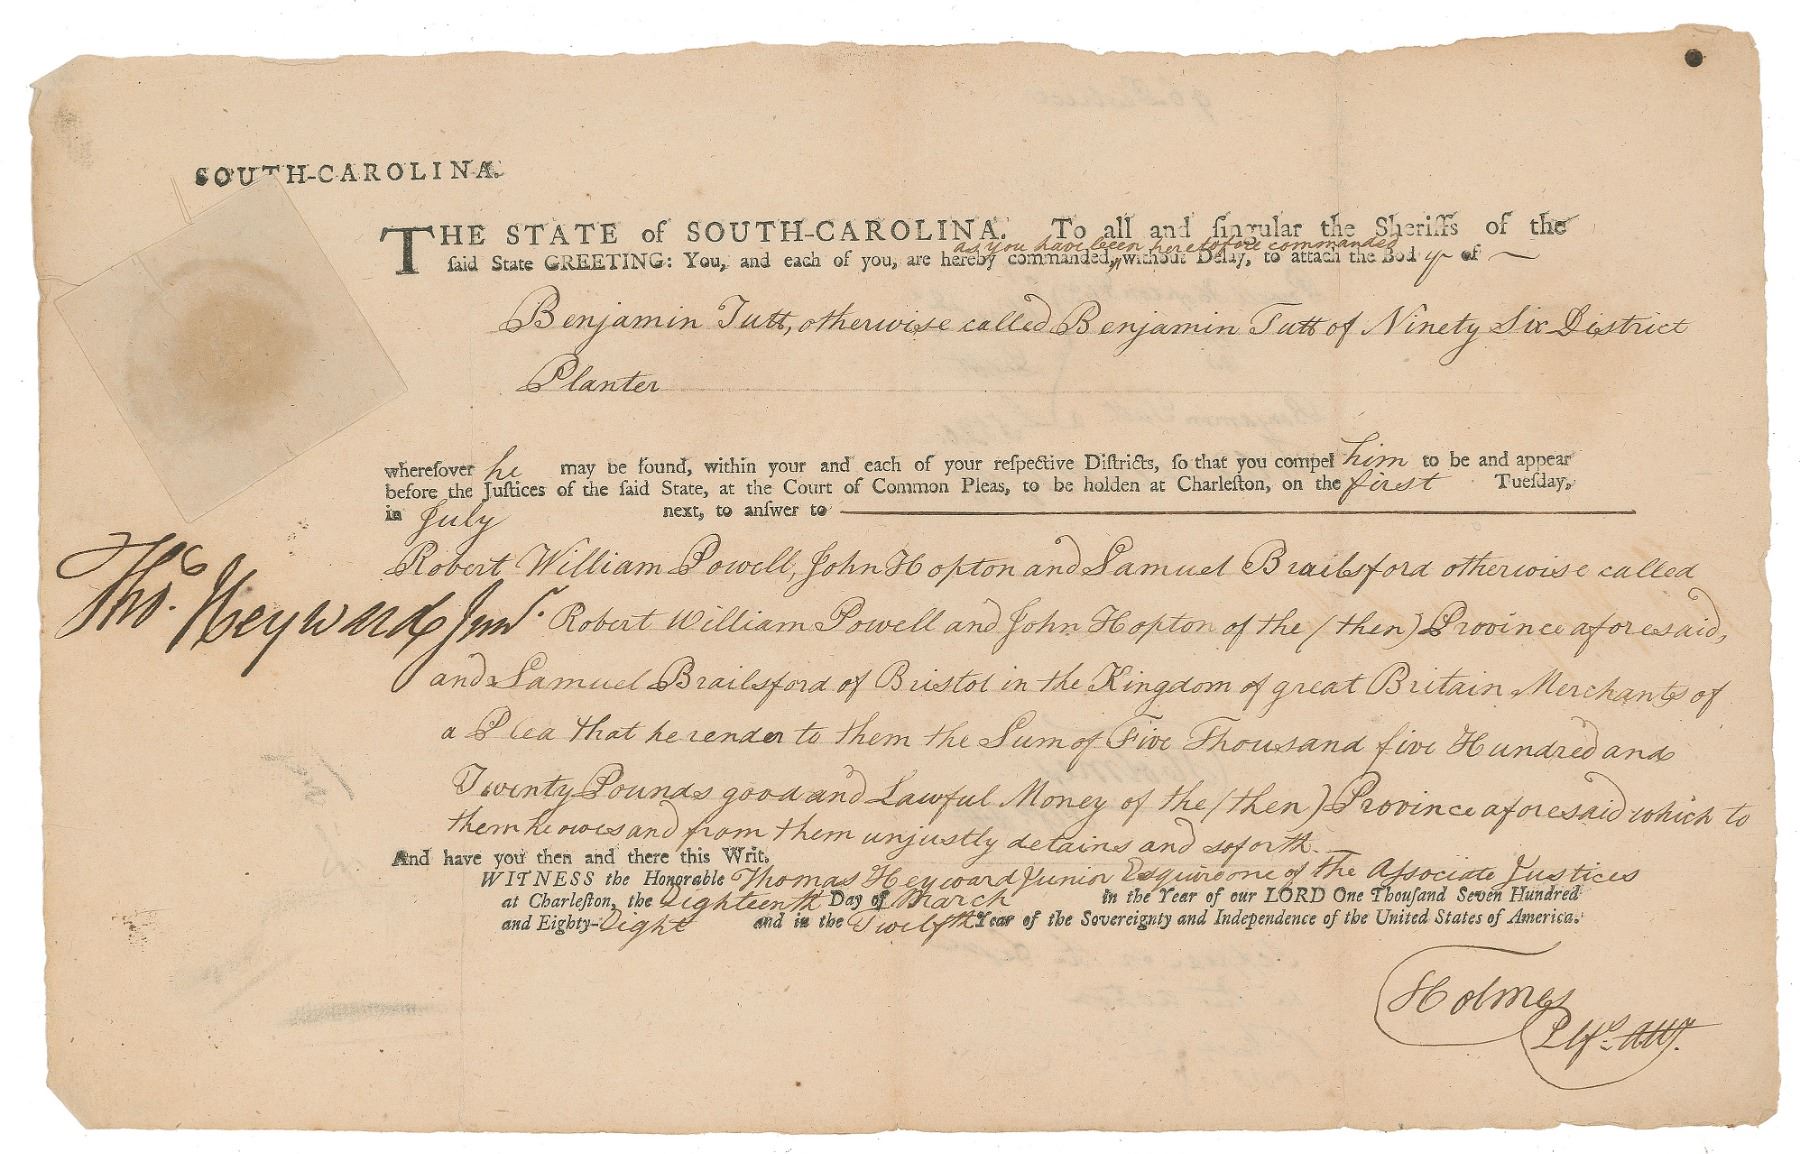 SOUTH-CAROLINA.
THE STATE of SOUTH-CAROLINA. To all and ſingular the Sheriffs of the
as you have been heretofore commanded
ſaid State GREETING: You, and each of you, are hereby commanded, without Delay, to attach the Body of
Benjamin Tutt, otherwise called Benjamin Tutt of Ninety Six District
Planter
whereſover he may be found, within your and each of your reſpective Diſtricts, ſo that you compel him to be and appear
before the Juſtices of the ſaid State, at the Court of Common Pleas, to be holden at Charleſton, on the first Tueſday,
in July next, to anſwer to
Robert William Powell, John Hopton and Samuel Brailsford otherwise called
Tho.s Heyward Junr.
Robert William Powell and John Hopton of the (then) Province aforesaid,
and Samuel Brailsford of Bristol in the Kingdom of great Britain Merchants of
a Plea that he render to them the Sum of Five Thousand five Hundred and
Twenty Pounds good and Lawful Money of the (then) Province aforesaid which to
them he owes and from them unjustly detains and soforth.
And have you then and there this Writ.
WITNESS the Honorable Thomas Heyward Junior Esquire one of the Associate Justices
at Charleſton, the Eighteenth Day of March in the Year of our LORD One Thouſand Seven Hundred
and Eighty-Eight and in the Twelfth Year of the Sovereignty and Independence of the United States of America.
Holmes
Plfs. Atty.